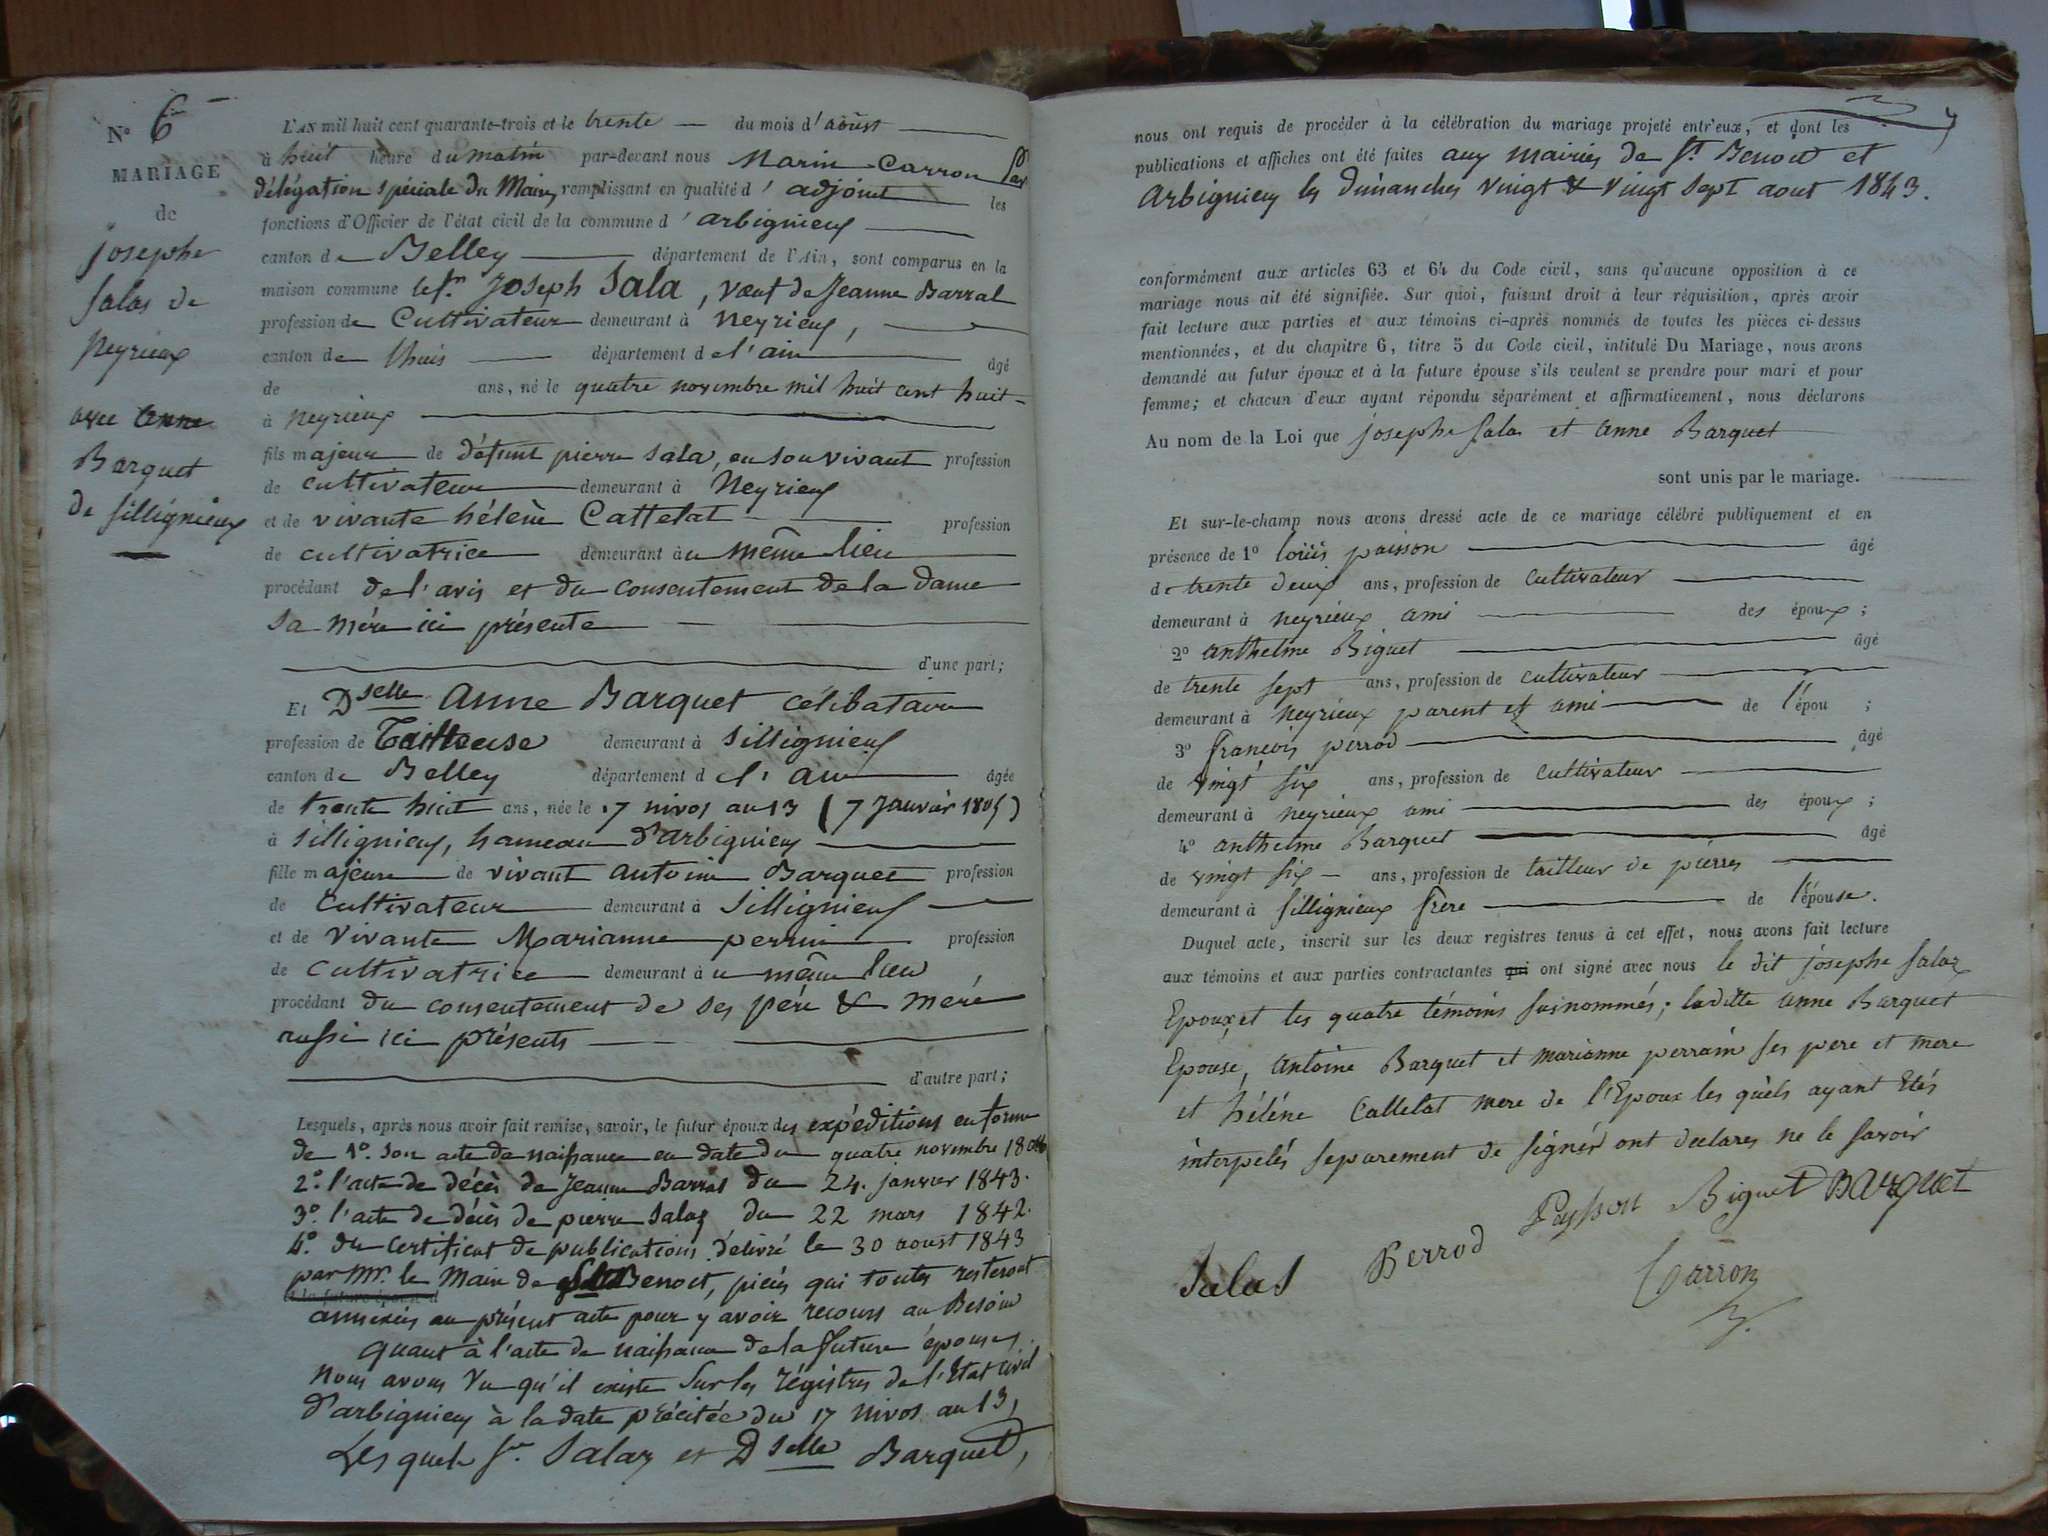 N° 6
MARIAGE
de
josephe
Salas de
Neyrieux
avec anne
Barquet
de Sillignieux
L'AN mil huit cent quarante-trois et le trente du mois d'aoûst
à huit heure du matin par-devant nous Marin Carron par
délégation spéciale du Maire, remplissant en qualité d'adjoint les
fonctions d'Officier de l'état civil de la commune d'arbignieux
canton de Belley département de l'Ain, sont comparus en la
maison commune le Sr. Joseph Sala, veuf de Jeanne Barral
profession de Cultivateur demeurant à Neyrieux,
canton de lhuis département de l'ain âgé
de ans, né le quatre novembre mil huit cent huit
à neyrieux
fils majeur de défunt pierre Sala, en son vivant profession
de cultivateur demeurant à Neyrieux
et de vivante hélène Cattelat profession
de cultivatrice demeurant au même lieu
procédant de l'avis et du consentement de la dame
sa mère ici présente
d'une part;
Et Dselle anne Barquet célibataire
profession de Tailleuse demeurant à Sillignieux
canton de Belley département de l'ain âgée
de trente huit ans, née le 17 nivos an 13 (7 Janvier 1805)
à Sillignieux, hameau d'arbignieux
fille majeure de vivant antoine Barquet profession
de Cultivateur demeurant à Sillignieux
et de vivante Marianne perrin profession
de Cultivatrice demeurant au même lieu,
procédant du consentement de ses père & mère
aussi ici présents
d'autre part;
Lesquels, après nous avoir fait remise, savoir, le futur époux des expéditions en forme
de 1°. son acte de naissance en date du quatre novembre 1808
2°. l'acte de décès de Jeanne Barral du 24. janvier 1843.
3°. l'acte de décès de pierre Salaz du 22 mars 1842.
4°. du certificat de publications délivré le 30 aoust 1843
par Mr. le Maire de St Benoit, pièces qui toutes resteront
et la future épouse d
annexées au présent acte pour y avoir recours au Besoin
quant à l'acte de naissance de la future épouse,
Nous avons vu qu'il existe sur les régistres de l'Etat civil
d'arbignieux à la date précitée du 17 nivos an 13,
Lesquels Sr. Salaz et Dselle Barquet,
nous ont requis de procéder à la célébration du mariage projeté entr'eux, et dont les
publications et affiches ont été faites aux mairies de St. Benoit et
Arbignieux les dimanches vingt & vingt sept aout 1843.
conformément aux articles 63 et 64 du Code civil, sans qu'aucune opposition à ce
mariage nous ait été signifiée. Sur quoi, faisant droit à leur réquisition, après avoir
fait lecture aux parties et aux témoins ci-après nommés de toutes les pièces ci-dessus
mentionnées, et du chapitre 6, titre 5 du Code civil, intitulé Du Mariage, nous avons
demandé au futur époux et à la future épouse s'ils veulent se prendre pour mari et pour
femme; et chacun d'eux ayant répondu séparément et affirmativement, nous déclarons
Au nom de la Loi que josephe Salas et anne Barquet
sont unis par le mariage.
Et sur-le-champ nous avons dressé acte de ce mariage célébré publiquement et en
présence de 1° loüis paisson âgé
de trente deux ans, profession de cultivateur
demeurant à neyrieux ami des époux;
2° anthelme Biguet âgé
de trente sept ans, profession de cultivateur
demeurant à neyrieux parent et ami de l'épou ;
3° françois perrod âgé
de vingt six ans, profession de cultivateur
demeurant à neyrieux ami des époux;
4° anthelme Barquet âgé
de vingt six ans, profession de tailleur de pierres
demeurant à Sillignieux frere de l'épouse.
Duquel acte, inscrit sur les deux registres tenus à cet effet, nous avons fait lecture
aux témoins et aux parties contractantes qui ont signé avec nous le dit josephe Salaz
Epoux et les quatre témoins susnommés; laditte anne Barquet
Epouse, antoine Barquet et marianne perrain ses pere et mere
et hélène Cattelat mere de l'Epoux les quels ayant Etés
interpelés separement de signér ont declares ne le savoir
Paysson Biguet Barquet
Salas Perrod
Carron